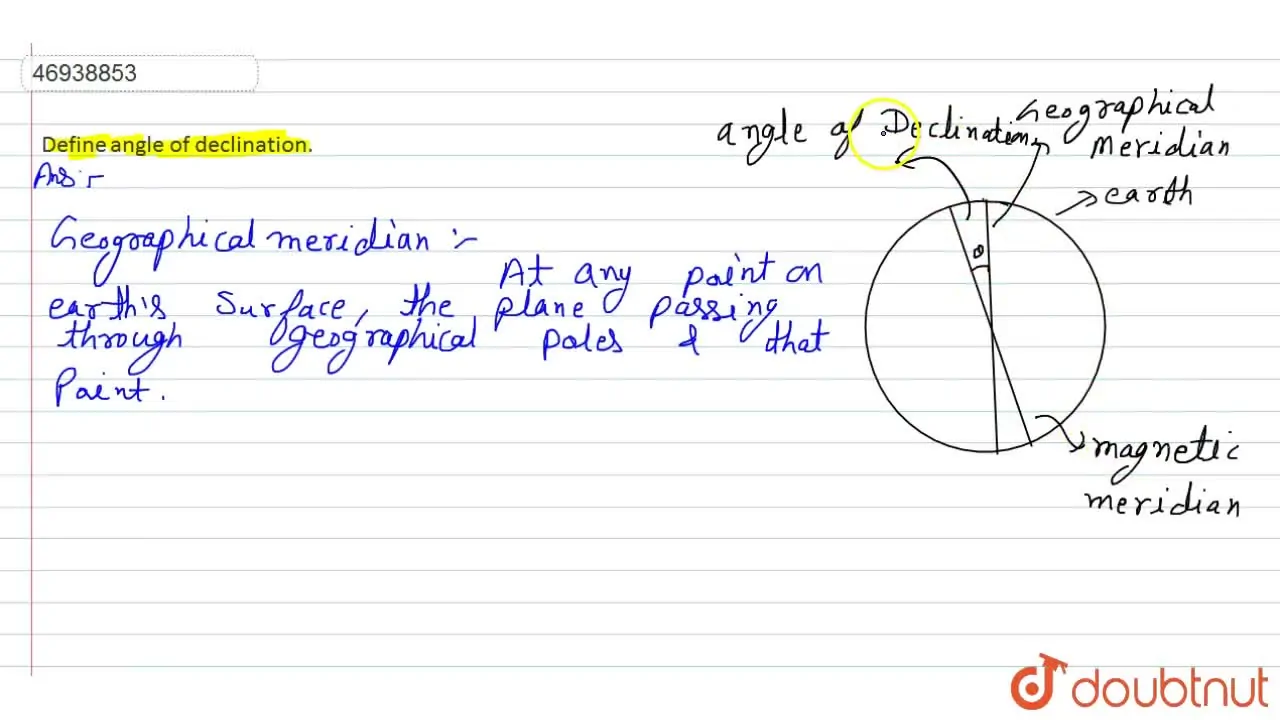 46938853
Define angle of declination.
Ans :-
Geographical meridian :-
At any point on
earth's surface, the plane passing
through geographical poles & that
Point.
angle of Declination
Geographical
Meridian
earth
θ
magnetic
meridian
doubtnut